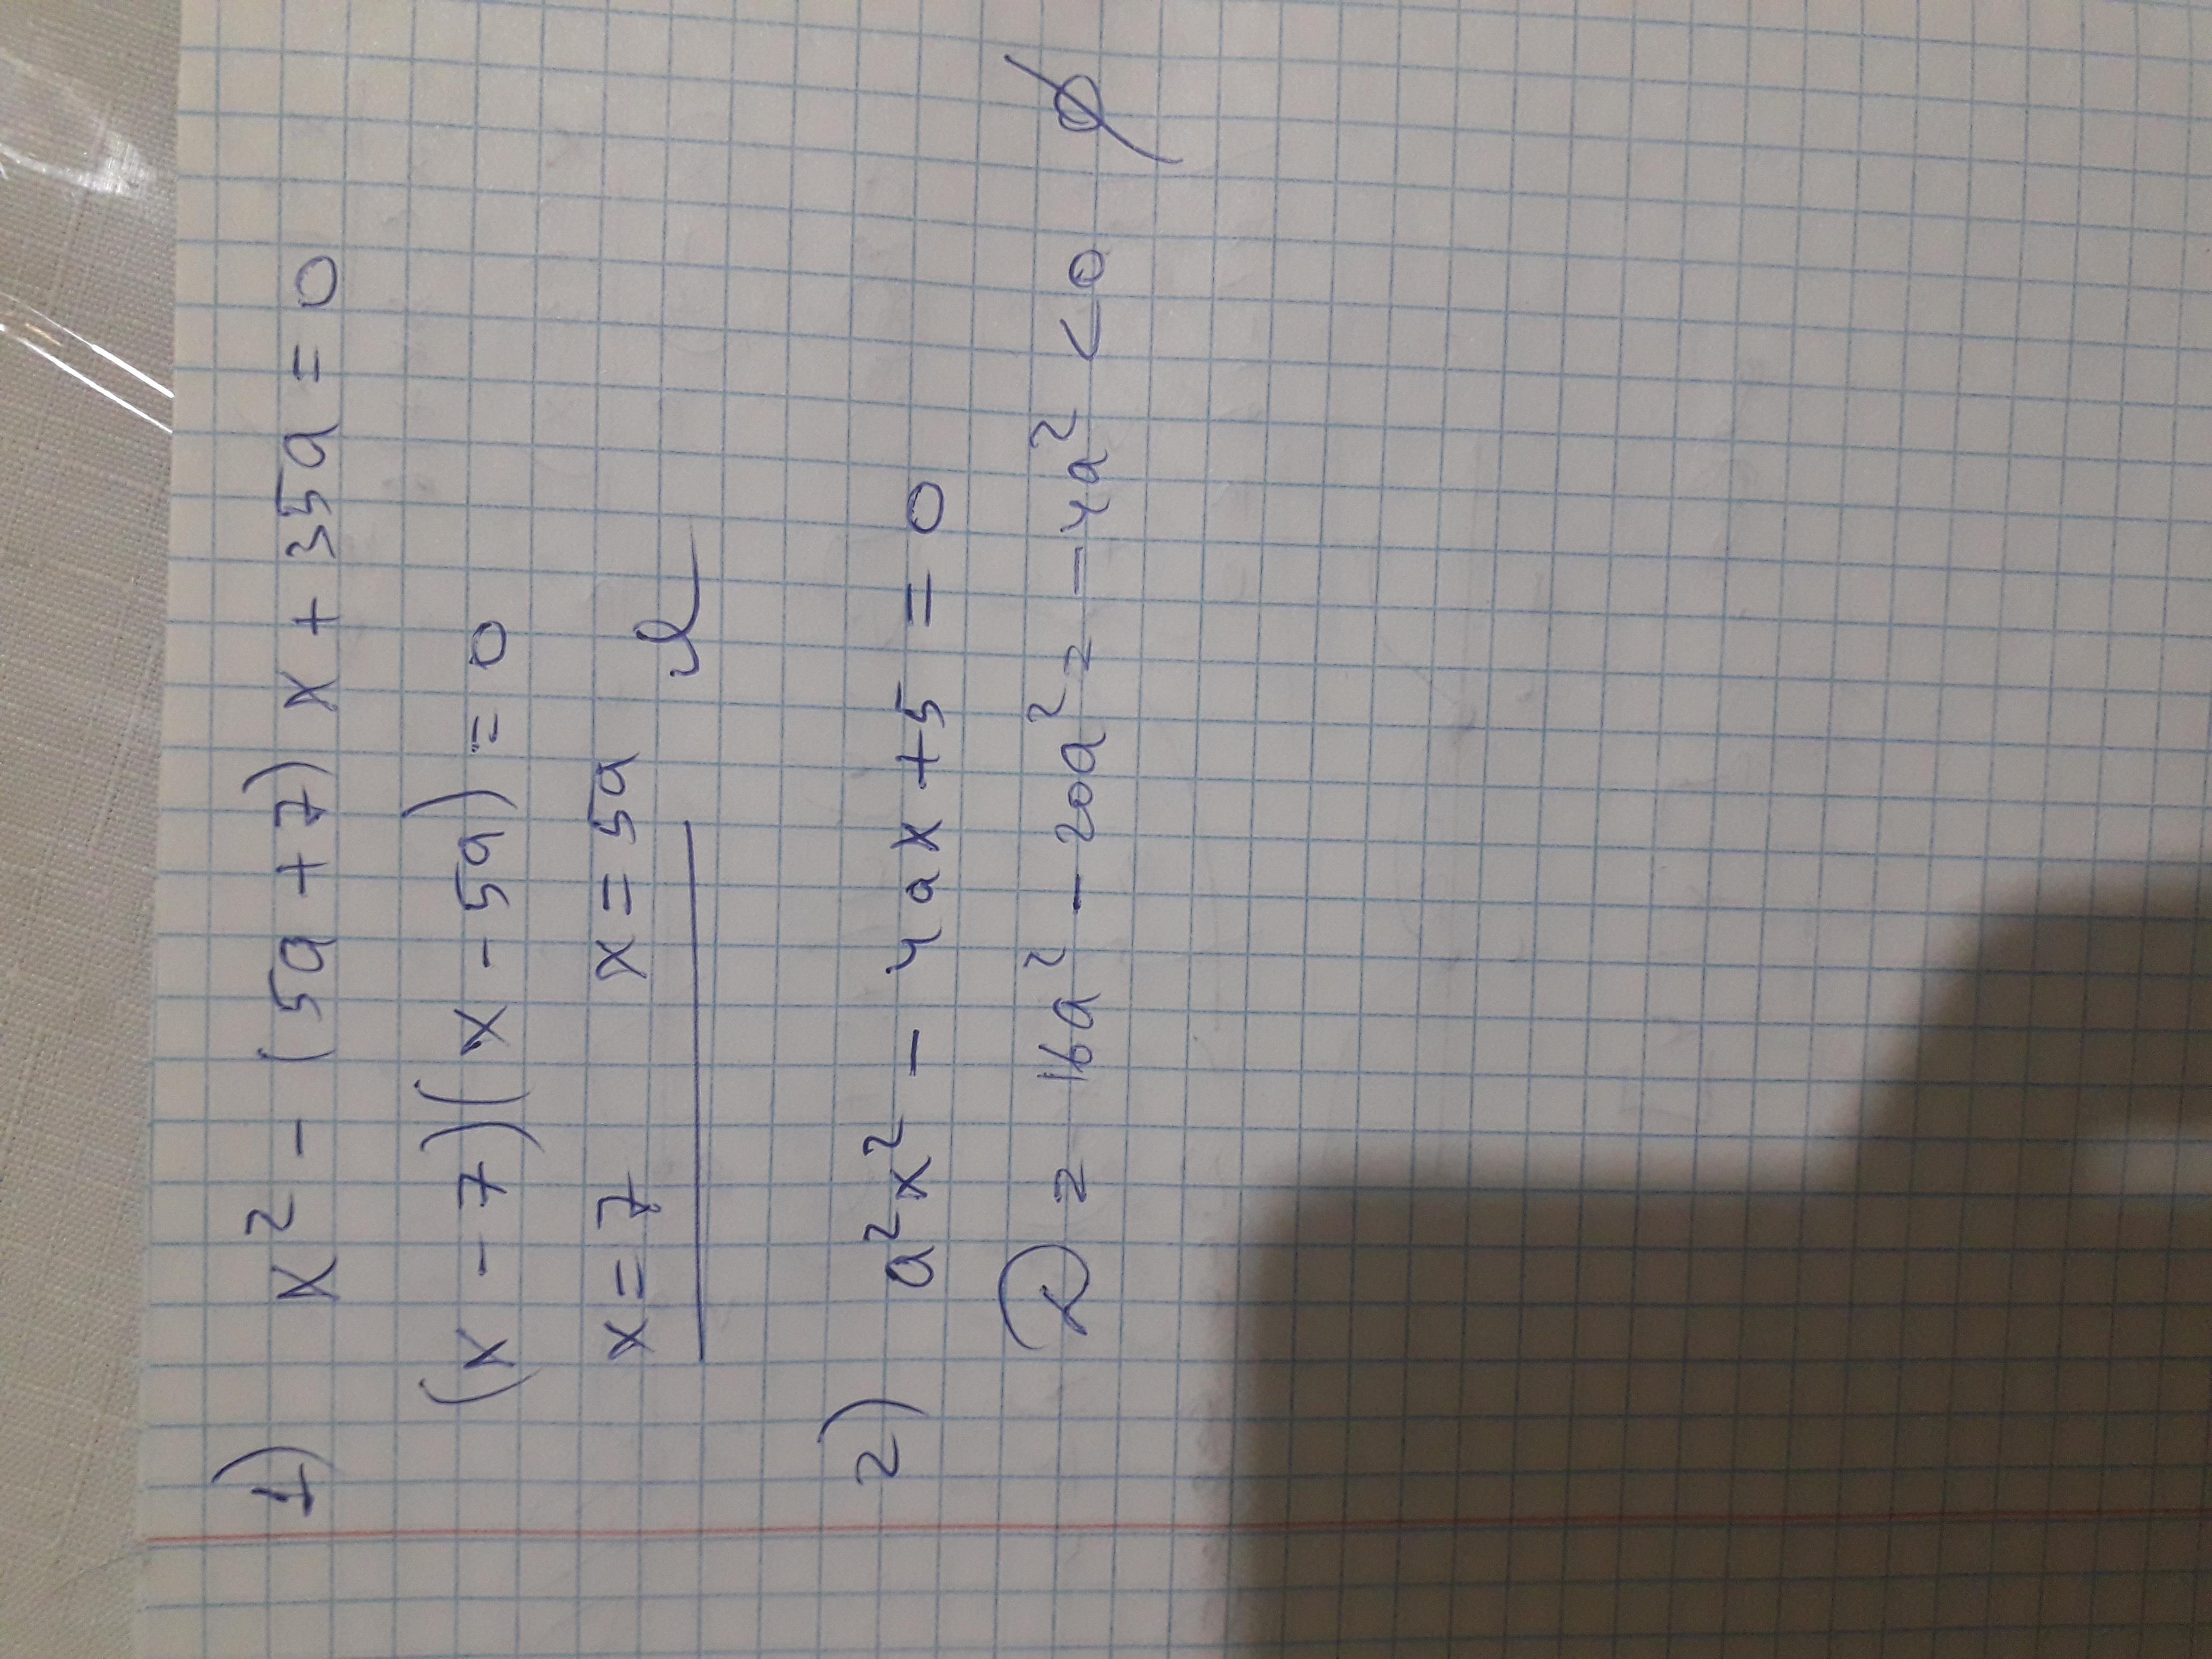 1) x² - (5a + 7) x + 35a = 0
(x - 7)(x - 5a) = 0
x = 7 x = 5a
2) a²x² - 4ax + 5 = 0
D = 16a² - 20a² = -4a² < 0 ∅